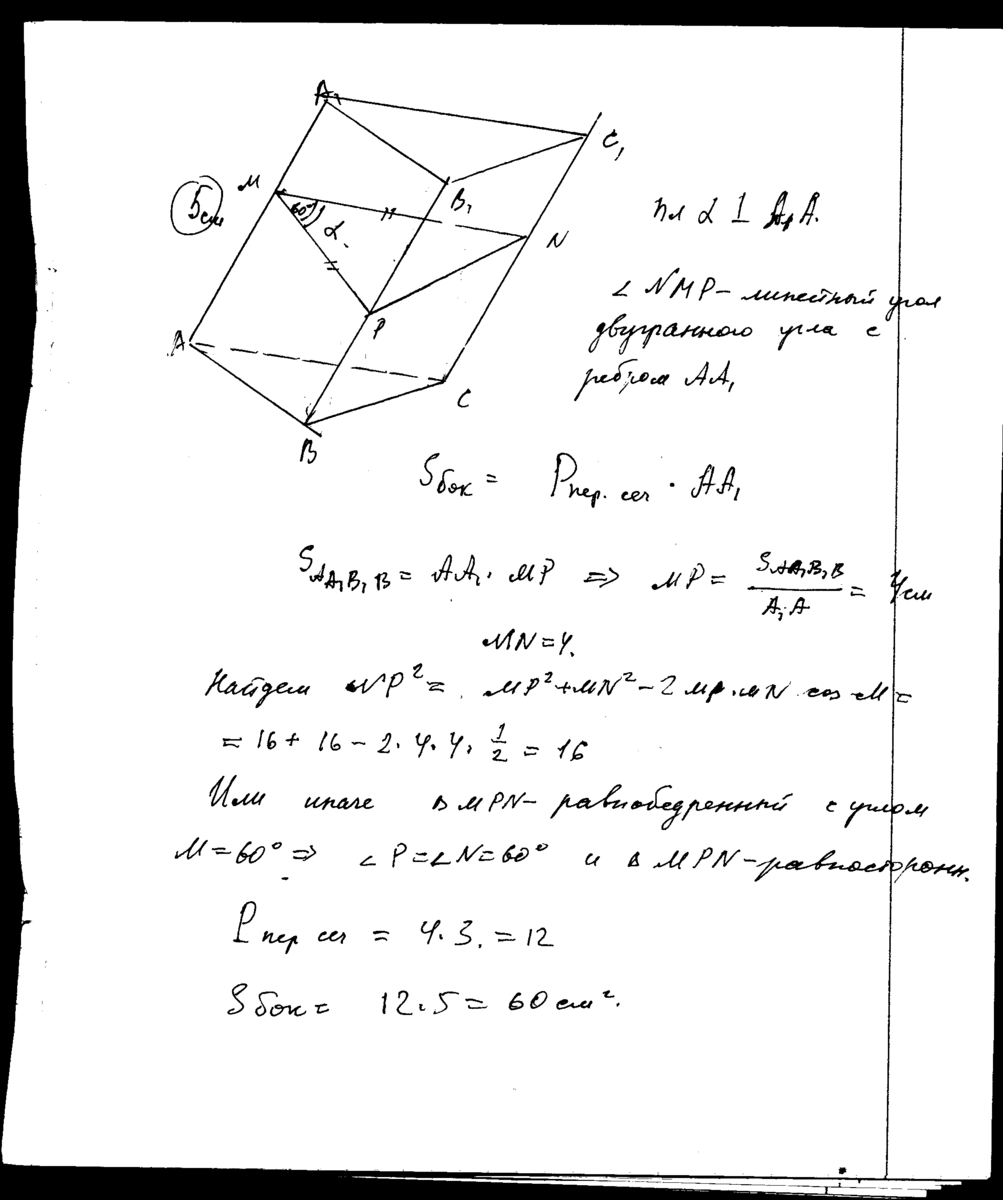 A₁
C₁
M
B₁
5см
60°
α
N
пл α ⊥ A₁A.
P
∠ NMP - линейный угол
двугранного угла с
ребром AA₁
A
C
B
Sбок = Pпер. сеч · AA₁
S_AA₁B₁B = AA₁ · MP => MP = S_AA₁B₁B / A₁A = 4см
MN = 4.
Найдем NP² = MP² + MN² - 2 MP · MN cos M =
= 16 + 16 - 2 · 4 · 4 · 1/2 = 16
Или иначе Δ MPN - равнобедренный с углом
M = 60° => ∠ P = ∠ N = 60° и Δ MPN - равносторонн.
Pпер сеч = 4 · 3. = 12
Sбок = 12 · 5 = 60 см².